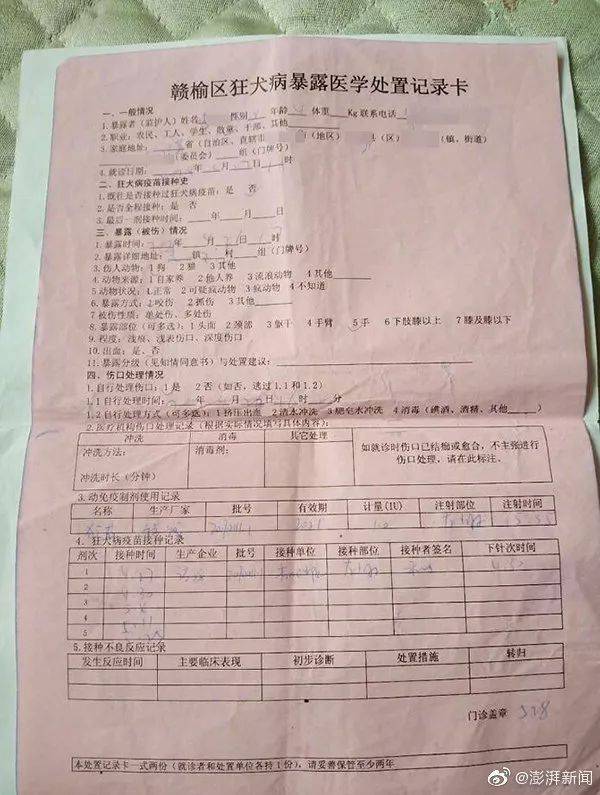 赣榆区狂犬病暴露医学处置记录卡
一、一般情况
1.暴露者(监护人)姓名 性别 年龄 体重 Kg 联系电话
2.职业:农民、工人、学生、散童、干部、其他
3.家庭地址: 省(自治区、直辖市 (地区) 县(区) (镇、街道)
(委员会) 组(门牌号)
4.就诊日期: 年 月 日 时
二、狂犬病疫苗接种史
1.既往是否接种过狂犬病疫苗:是 否
2.是否全程接种:是 否
3.最后一剂接种时间: 年 月 日
三、暴露(被伤)情况
1.暴露时间: 年 月 日 时
2.暴露详细地址: 镇 村 组(门牌号)
3.伤人动物:1 狗 2 猫 3 其他
4.动物来源:1 自家养 2 他人养 3 流浪动物 4 其他
5.动物状况:1 正常 2 可疑疯动物 3 疯动物 4 不知道
6.暴露方式:1 咬伤 2 抓伤 3 其他
7 被伤性质:单处伤、多处伤
8.暴露部位(可多选):1 头面 2 颈部 3 躯干 4 手臂 5 手 6 下肢膝以上 7 膝及膝以下
9.程度:浅痕、浅表伤口、深度伤口
10.出血:是、否
11.暴露分级(见知情同意书)与处置建议:
四、伤口处理情况
1.自行处理伤口:1 是 2 否(如否,选过 1.1 和 1.2)
1.1 自行处理时间: 年 月 日 时 分
1.2 自行处理方式(可多选):1 挤压出血 2 清水冲洗 3 肥皂水冲洗 4 消毒(碘酒、酒精、其他 )
2.医疗机构伤口处理记录(根据实际情况填写具体内容):
冲洗 消毒 其它处理
冲洗方法: 消毒剂: 如就诊时伤口已结痂或愈合,不主张进行伤口处理,请在此标注。
冲洗时长(分钟)
3.动免疫制剂使用记录
名称 生产厂家 批号 有效期 计量(IU) 注射部位 注射时间
4.狂犬病疫苗接种记录
剂次 接种时间 生产企业 批号 接种单位 接种部位 接种者签名 下针次时间
1 4.27 4.30
2 4.30
3
4
5
5.接种不良反应记录
发生反应时间 主要临床表现 初步诊断 处置措施 转归
门诊盖章 528
本处置记录卡一式两份(就诊者和处置单位各持1份),请妥善保管至少两年
@澎湃新闻